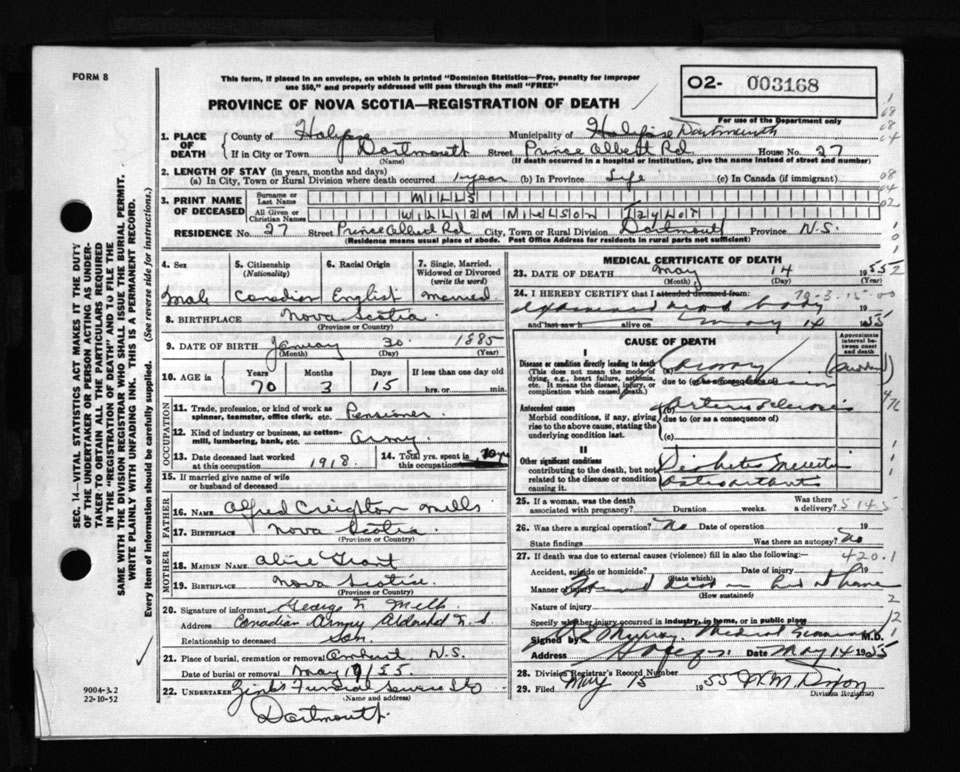 FORM 8
This form, if placed in an envelope, on which is printed "Dominion Statistics—Free, penalty for improper
use $50," and properly addressed will pass through the mail "FREE"
O2- 003168
For use of the Department only
PROVINCE OF NOVA SCOTIA—REGISTRATION OF DEATH
SEC. 14—VITAL STATISTICS ACT MAKES IT THE DUTY
OF THE UNDERTAKER OR PERSON ACTING AS UNDER-
TAKER TO OBTAIN ALL THE PARTICULARS REQUIRED
IN THE "REGISTRATION OF DEATH" AND TO FILE THE
SAME WITH THE DIVISION REGISTRAR WHO SHALL ISSUE THE BURIAL PERMIT.
WRITE PLAINLY WITH UNFADING INK. THIS IS A PERMANENT RECORD.
Every item of information should be carefully supplied. (See reverse side for instructions.)
1. PLACE OF DEATH
County of Halifax Municipality of Halifax Dartmouth
If in City or Town Dartmouth Street Prince Albert Rd House No. 27
(Name) (If death occurred in a hospital or institution, give the name instead of street and number)
2. LENGTH OF STAY (in years, months and days)
(a) In City, Town or Rural Division where death occurred 1 year (b) In Province Life (c) In Canada (if immigrant)
3. PRINT NAME OF DECEASED
Surname or Last Name MILLS
All Given or Christian Names William Nielson Taylor
RESIDENCE No. 27 Street Prince Albert Rd City, Town or Rural Division Dartmouth Province N.S.
(Residence means usual place of abode. Post Office Address for residents in rural parts not sufficient)
4. Sex Male
5. Citizenship (Nationality) Canadian
6. Racial Origin English
7. Single, Married, Widowed or Divorced (write the word) Married
8. BIRTHPLACE Nova Scotia
(Province or Country)
9. DATE OF BIRTH January 30 1885
(Month) (Day) (Year)
10. AGE in Years 70 Months 3 Days 15 If less than one day old hrs. or min.
OCCUPATION
11. Trade, profession, or kind of work as spinner, teamster, office clerk, etc. Pensioner
12. Kind of industry or business, as cotton-mill, lumbering, bank, etc. Army
13. Date deceased last worked at this occupation 1918
14. Total yrs. spent in this occupation
15. If married give name of wife or husband of deceased
FATHER
16. Name Alfred Creighton Mills
17. Birthplace Nova Scotia
(Province or Country)
MOTHER
18. MAIDEN NAME Alice Grant
19. BIRTHPLACE Nova Scotia
(Province or Country)
20. Signature of informant George Mills
Address Canadian Army
Relationship to deceased Son
21. Place of burial, cremation or removal Amherst N.S.
Date of burial or removal May 1955
22. UNDERTAKER Zink's Funeral Service
(Name and address)
Dartmouth
9004-3.2
22-10-52
MEDICAL CERTIFICATE OF DEATH
23. DATE OF DEATH May 14 1955
(Month) (Day)
24. I HEREBY CERTIFY that I attended deceased from:
examined dead body
and last saw h alive on May 14 1955
CAUSE OF DEATH
Approximate interval between onset and death
I
Disease or condition directly leading to death
(This does not mean the mode of dying, e.g., heart failure, asthenia, etc. It means the disease, injury, or complication which caused death.)
(a) Coronary
due to (or as a consequence of)
Antecedent causes
Morbid conditions, if any, giving rise to the above cause, stating the underlying condition last.
(b) Arteriosclerosis
due to (or as a consequence of)
(c)
II
Other significant conditions
contributing to the death, but not related to the disease or condition causing it.
Diabetes Mellitus
25. If a woman, was the death associated with pregnancy? Duration weeks. Was there a delivery?
26. Was there a surgical operation? No Date of operation 19
State findings Was there an autopsy? No
27. If death was due to external causes (violence) fill in also the following: 420.1
Accident, suicide or homicide? (State which) Date of injury 19
Manner of injury
(How sustained)
Nature of injury
Specify whether injury occurred in industry, in home, or in public place
Signed by Murray Medical Examiner M.D.
Address Date May 14 1955
28. Division Registrar's Record Number
29. Filed May 15 1955 Dixon
Division Registrar